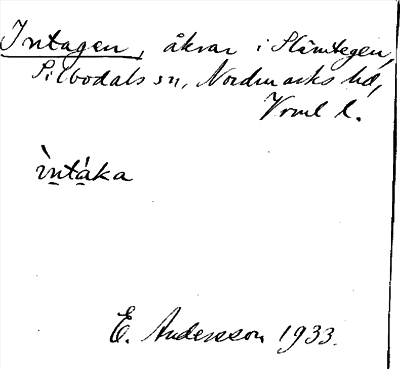 Intagen, åkrar i Slämtegen,
Silbodals sn, Nordmarks hd,
Verml l.
ìntáka
E. Andersson 1933.